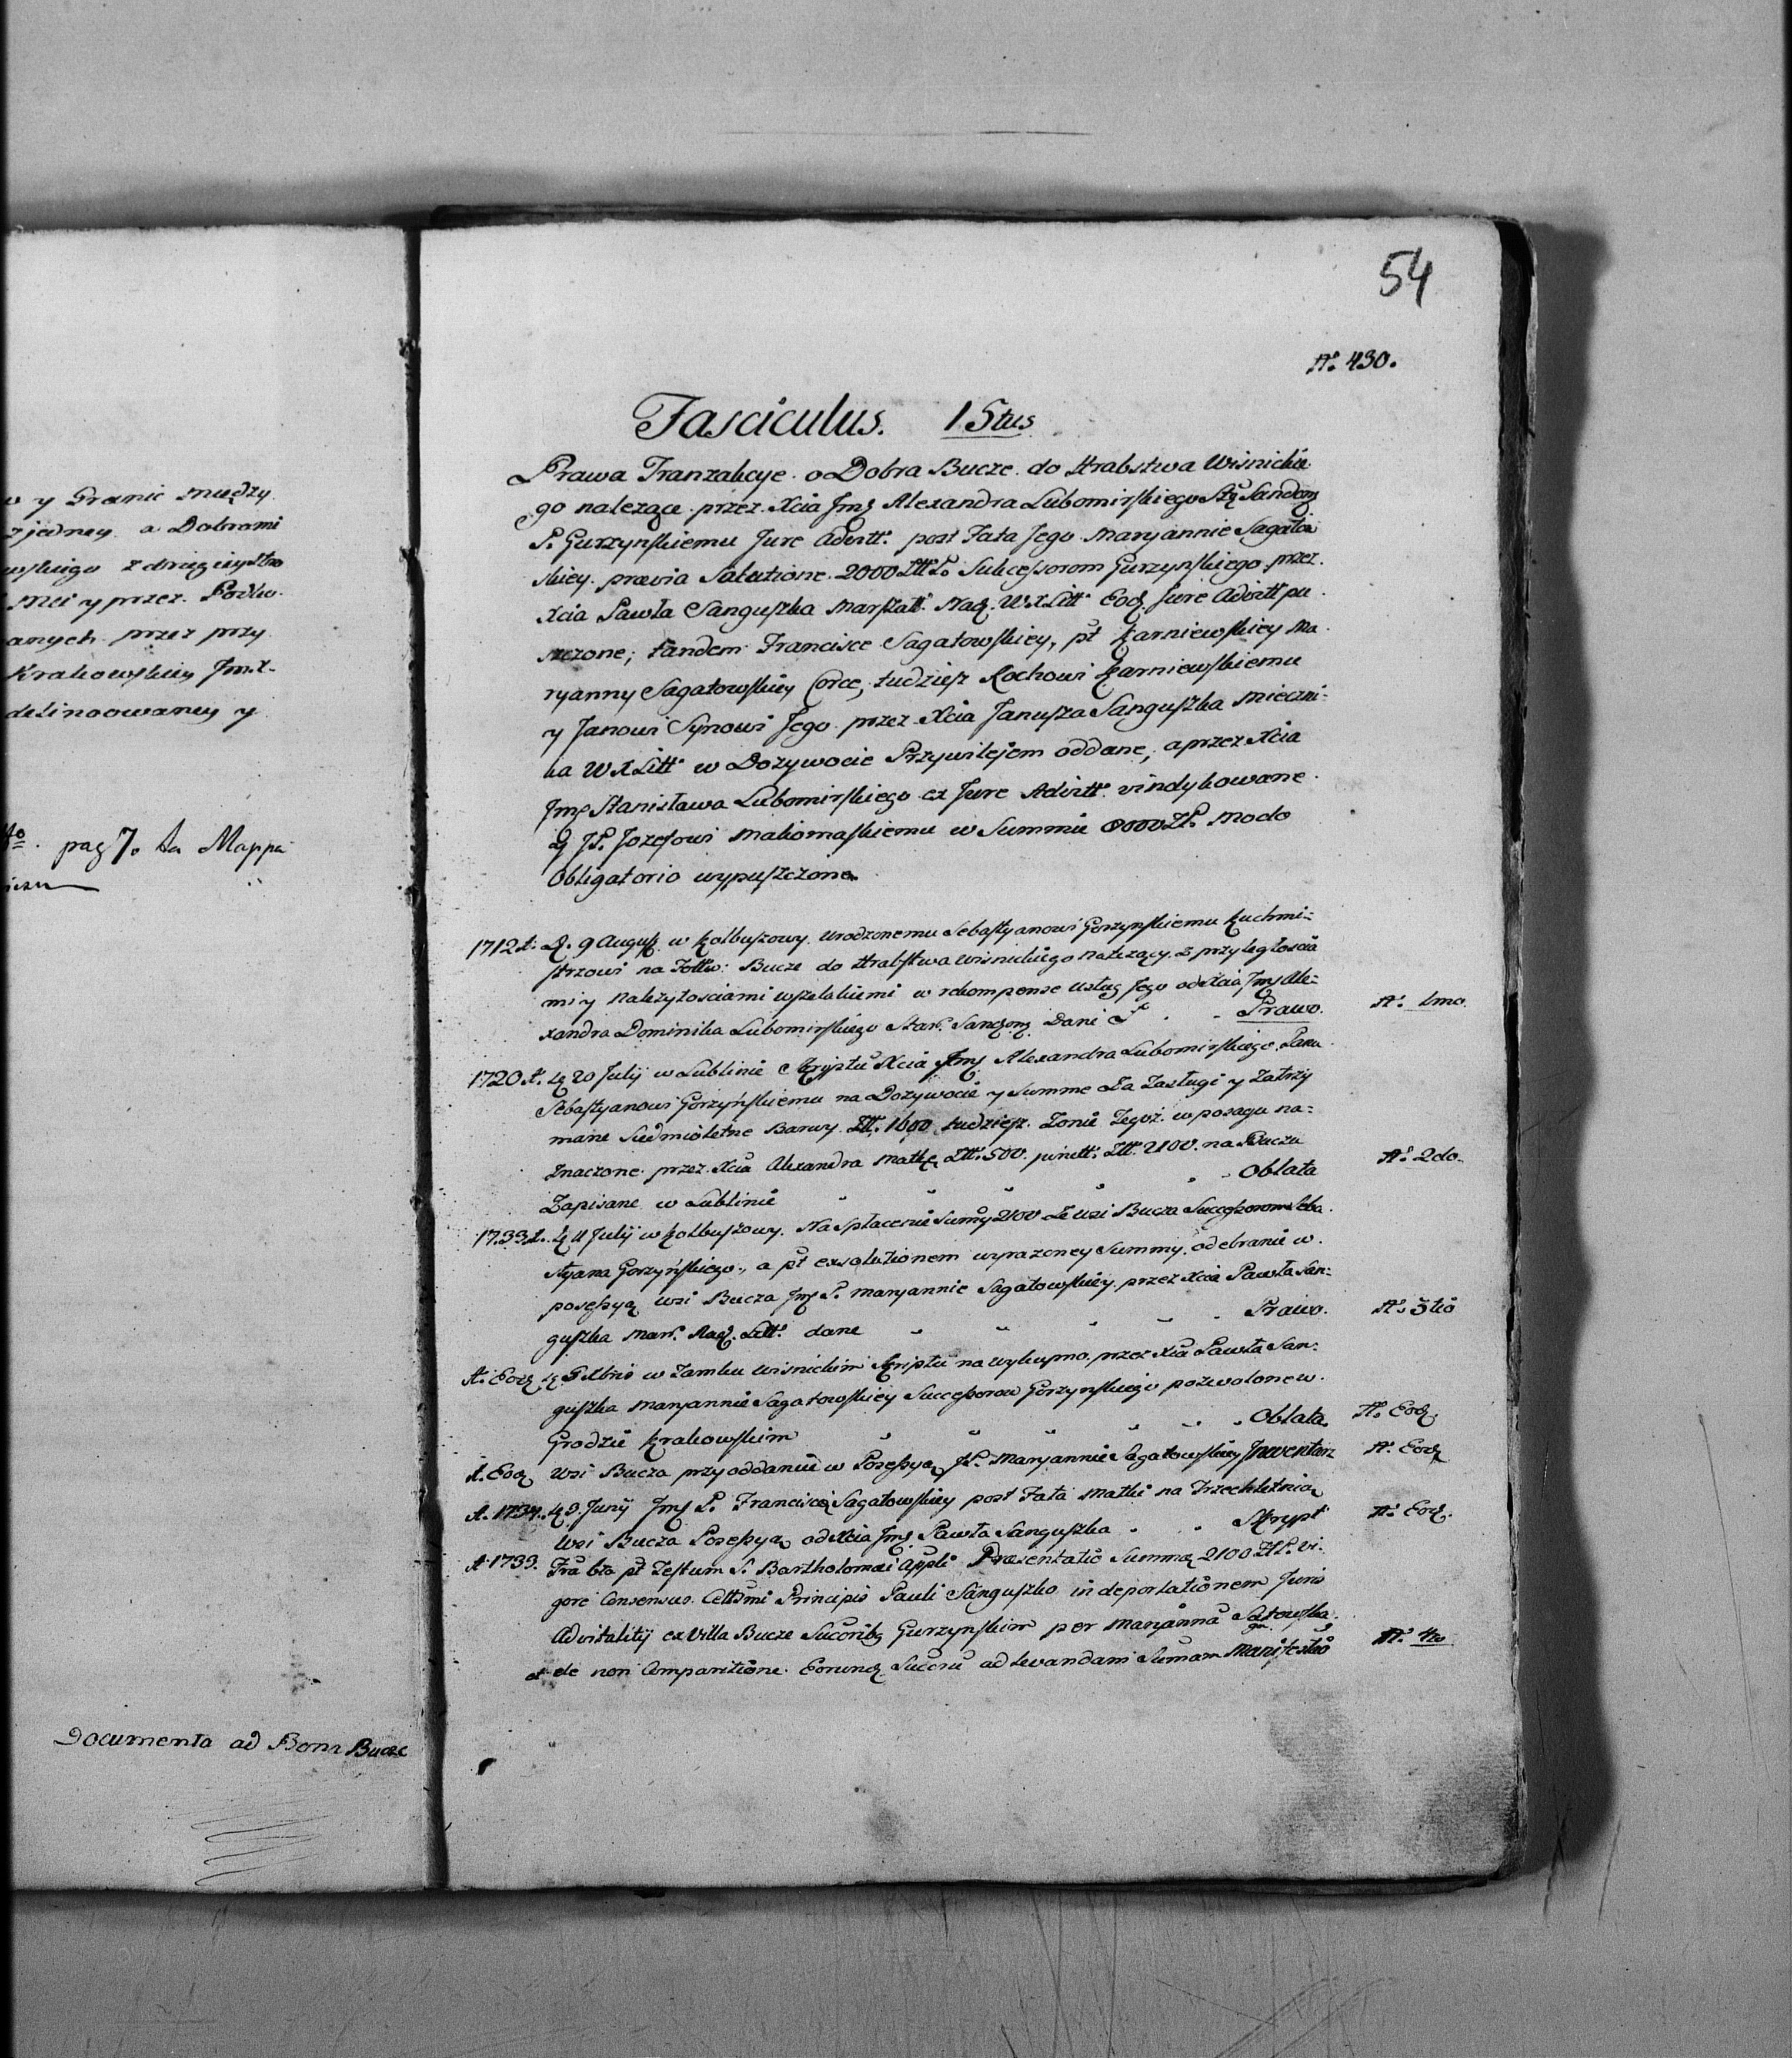 w y Granic między
z jedney a Dobrami
wskiego z drugiey stro
Mci y przez Podko.
anych przez przy
Krakowskiey Jmx.
delinoowaney y
pag 7. La Mappa
Documenta ad Bona Bucze
54
N° 430.
Fasciculus. 15tus
Prawa Tranzakcye o Dobra Bucze do Hrabstwa Wisnickie
go nalezące przez Xcia Jmę Alexandra Lubomirskiego Stę Sandom
P. Gurzynskiemu Jure Advitt: post Fata Jego Maryannie Sagatow
skiey prævia Solutione 2000 Ztt P. Sukcessorom Gurzynskiego przez
Xcia Pawła Sanguszka Marszałł: Nad. WXLitt: Eod. Jure Advitt pu
szczone; tandem Francisce Sagatowskiey, pt Karniewskiey Ma
ryanny Sagatowskiey Corce, tudziesz Rochowi Karniewskiemu
y Janowi Synowi Jego przez Xcia Janusza Sanguszka Mieczni-
ka WXLitt: w Dozywocie Przywilejem oddane, a przez Xcia
Jmę Stanisława Lubomirskiego ex Jure Advitt. vindykowane
y JP. Jozefowi Makomaskiemu w Summie 8000 ZP. modo
Obligatorio wypuszczone
1712 A: D. 9 August. w Kolbuszowy. Urodzonemu Sebastyanowi Gorzynskiemu Kuchmi-
strzowi na Folw: Bucze do Hrabstwa Wisnickiego nalezący z przyległoscia
mi y nalezytosciami wszelakiemi w rekompense usług Jego od Xcia Jmę Ale-
xandra Dominika Lubomirskiego Star. Sandom. Dane Prawo. N° 1mo.
1720 A. D. 20 Julij w Lublinie Skryptu Xcia Jmę Alexandra Lubomirskiego Panu
Sebastyanowi Gorzyńskiemu na Dozywocie y Summe Za Zasługi y Zatrzy
mane Siedmioletne Barwy Ztt. 1600 tudziesz Zonie Tegoż w posagu na-
znaczone przez Xcia Alexandra Matkę Ztt. 500. junctt. Ztt. 2100. na Buczu
Zapisane w Lublinie Oblata N° 2do.
1733 A. D. 11 Julij w Kolbuszowy. Na Spłacenie Sumy 2100 Ze wsi Bucza Successorom Seba
styana Gorzyńskiego, a pt exsolutionem wyrazoney Summy odebranie w
possessyą wsi Bucza Jmę P. Maryannie Sagatowskiey przez Xcia Pawła San-
guszka Mar. Nad. Litt. dane Prawo. N° 3tio
A. Eod. D. 5 Xbris w Zamku Wisnickim Skriptu na wykupno przez Xcia Pawła San-
guszka Maryannie Sagatowskiey Successorow Gorzynskiego pozwolone w
Grodzie Krakowskim Oblata. N° Eod.
A. Eod. Wsi Bucza przy oddaniu w Possessyą JP. Maryannie Sagatowskiey Inwentarz N° Eod.
A. 1734. D. 9. Junij Jmę P. Franciscę Sagatowskiey post Fata Matki na Trzechletnią
Wsi Bucza Possessyą od Xcia Jmę Pawła Sanguszka Skrypt N° Eod.
A. 1733. Fra 6ta pt Festum S. Bartholomæi Appli Præsentatio Summæ 2100 ZlP. vi-
gore Consensus Celssmi Principis Pauli Sanguszko in deportationem Juris
Advitalitij ex Villa Bucze Sucorib9 Gurzynskim per Maryanna Sagatowska
et de non Comparitione Eorund. Succrū ad levandam Sumam Manifestio N° 4to